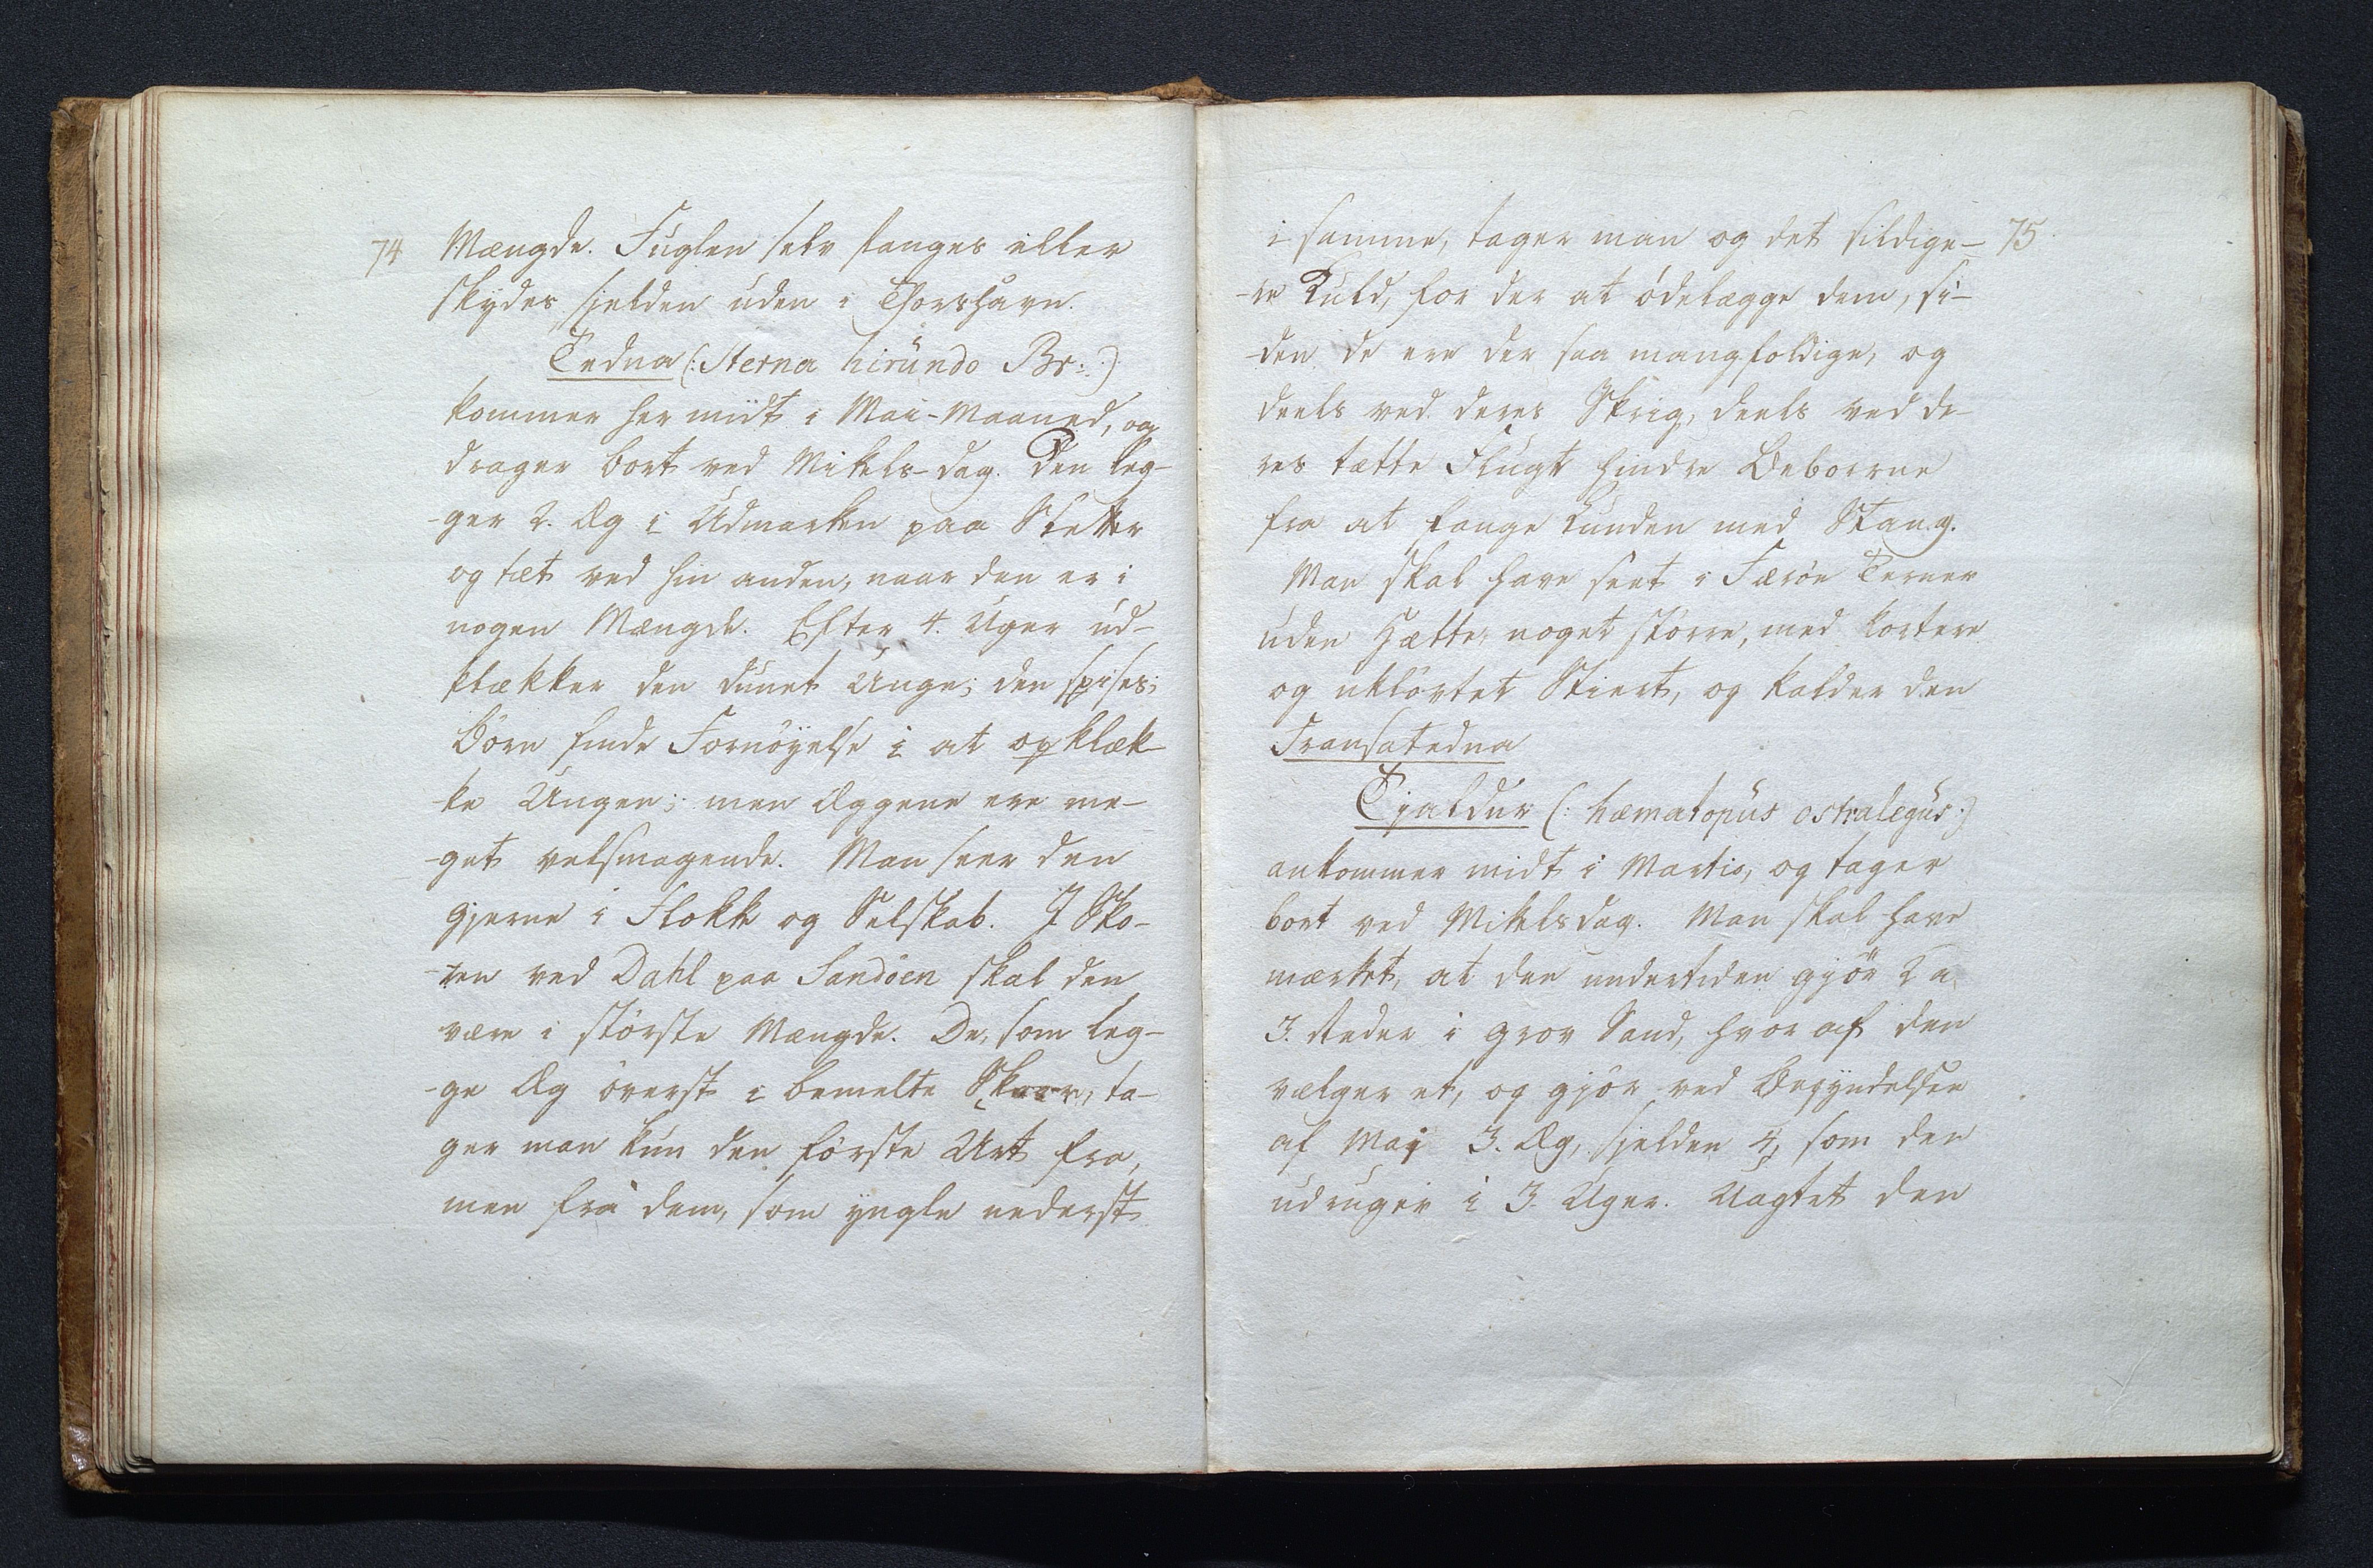 74
Mængde. Fuglen selv fanges eller
skydes sjelden uden i Thorshavn.
Tedna (: Sterna hirundo Br: :)
kommer her midt i Mai-Maaned, og
drager bort ved Mikels-dag. Den leg-
-ger 2. Æg i Udmarken paa Slette
og tæt ved hin anden, naar den er i
nogen Mængde. Efter 4. Uger ud-
klækker den dunet Unge; den spises;
Börn finde Fornöyelse i at opklæk-
-ke Ungen; men Æggene ere me-
-get velsmagende. Man seer den
gjerne i Flokk og Selskab. I Sko-
-ren ved Dahl paa Sandöen skal den
være i störste Mængde. De, som leg-
-ge Æg överst i bemelte Skor, ta-
ger man kun den förste Urt fra,
men fra dem, som yngle nederst
75
i samme, tager man og det sildige-
-re Kuld, for der at ödelægge dem, si-
-den de ere der saa mangfoldige, og
deels ved deres Skrig, deels ved de-
res tætte Flugt hindre Beboerne
fra at fange Lunden med Stang.
Man skal have seet i Færöe Terner
uden Hætte, noget större, med kortere
og uklövtet Stiert, og kalder den
Fransatedna
Tjaldur (: hæmatopus ostralegus :)
ankommer midt i Martio, og tager
bort ved Mikelsdag. Man skal have
mærket, at den undertiden gjör 2 a
3. Reder i grov Sand, hvor af den
vælger et, og gjör ved Begyndelsen
af Maj 3. Æg, sjelden 4, som den
udruger i 3. Uger. Uagtet den